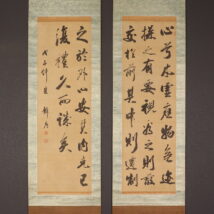 心兮本虛應物無迹
操之有要視為之則蔽
交於前其中則遷制
之於外以安其內克己
復禮久而誠矣
戊子仲夏